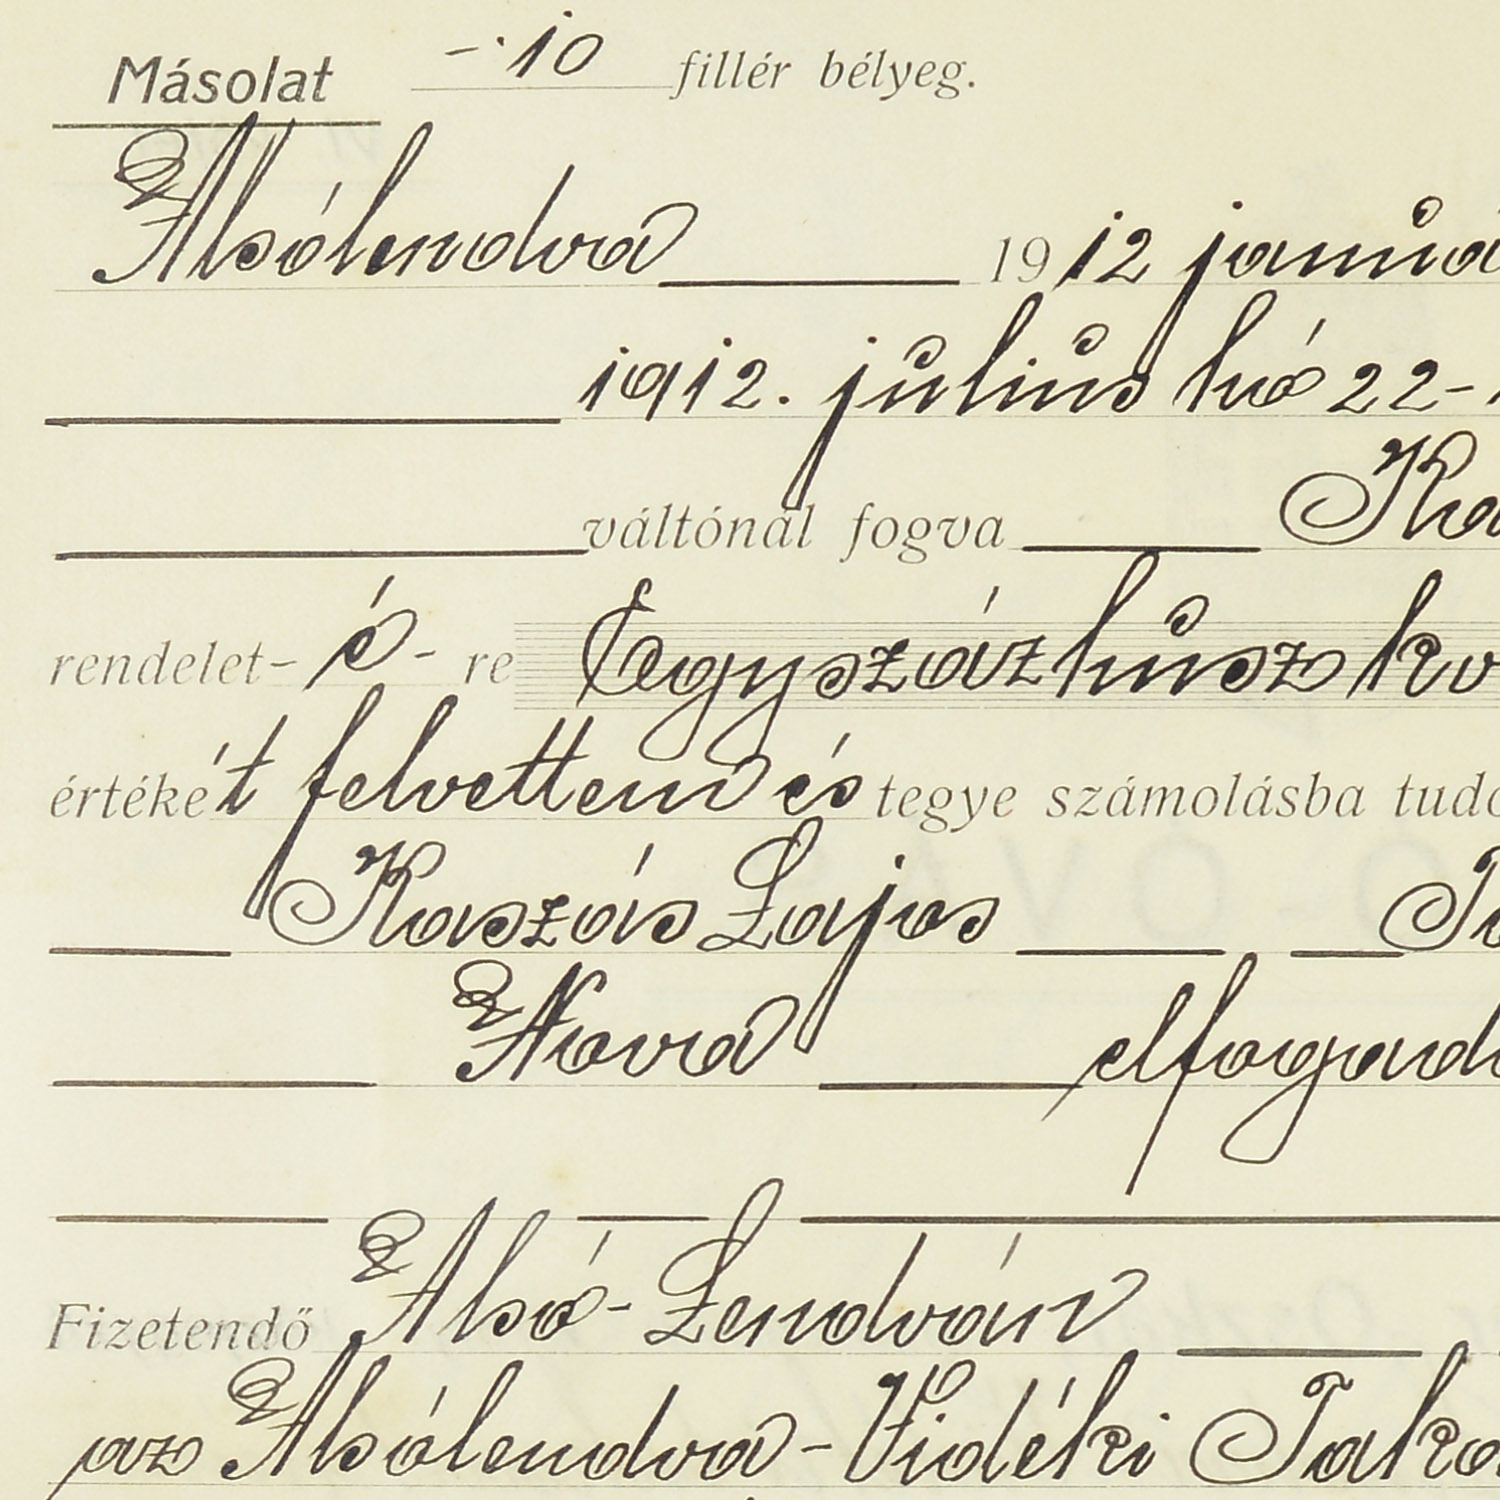 Másolat -·10 fillér bélyeg.
Alsólendva 1912 januá
1912. július hó 22-
váltónál fogva Ka
rendelet- é - re Egyszázhúsz ko
értékét felvettem és tegye számolásba tudó
Kaszás Lajos
Nova elfogad
Fizetendő Alsó-Lendván
az Alsólendva-Vidéki Taka